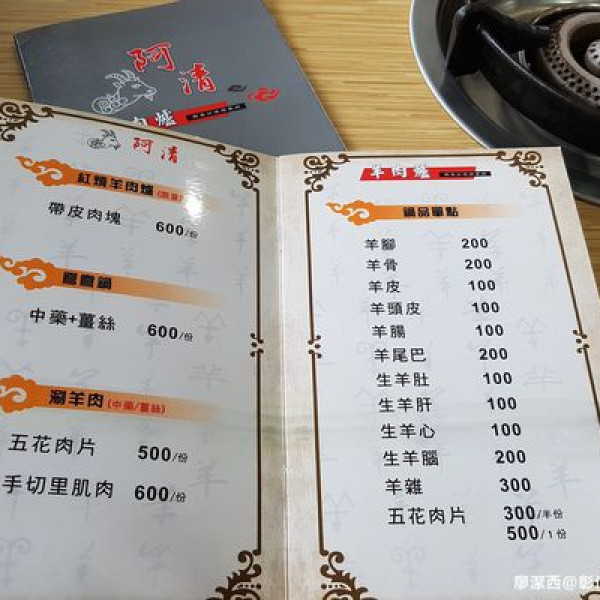 阿清
肉爐
阿清
紅燒羊肉爐
帶皮肉塊 600/份
中藥+薑絲 600/份
涮羊肉(中藥/薑絲)
五花肉片 500/份
手切里肌肉 600/份
羊肉爐
鍋品單點
羊腳 200
羊骨 200
羊皮 100
羊頭皮 100
羊腸 100
羊尾巴 200
生羊肚 100
生羊肝 100
生羊心 100
生羊腦 200
羊雜 300
五花肉片 300/半份
500/1份
廖潔西@彰化